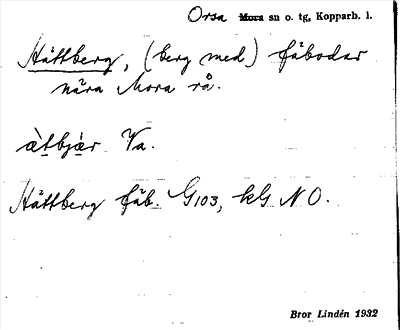 Orsa Mora sn o. tg, Kopparb. l.
Håttberg, (berg med) fäbodar
nära Mora rå.
àtbjær Va.
Håttberg fäb. G103, kG NO.
Bror Lindén 1932